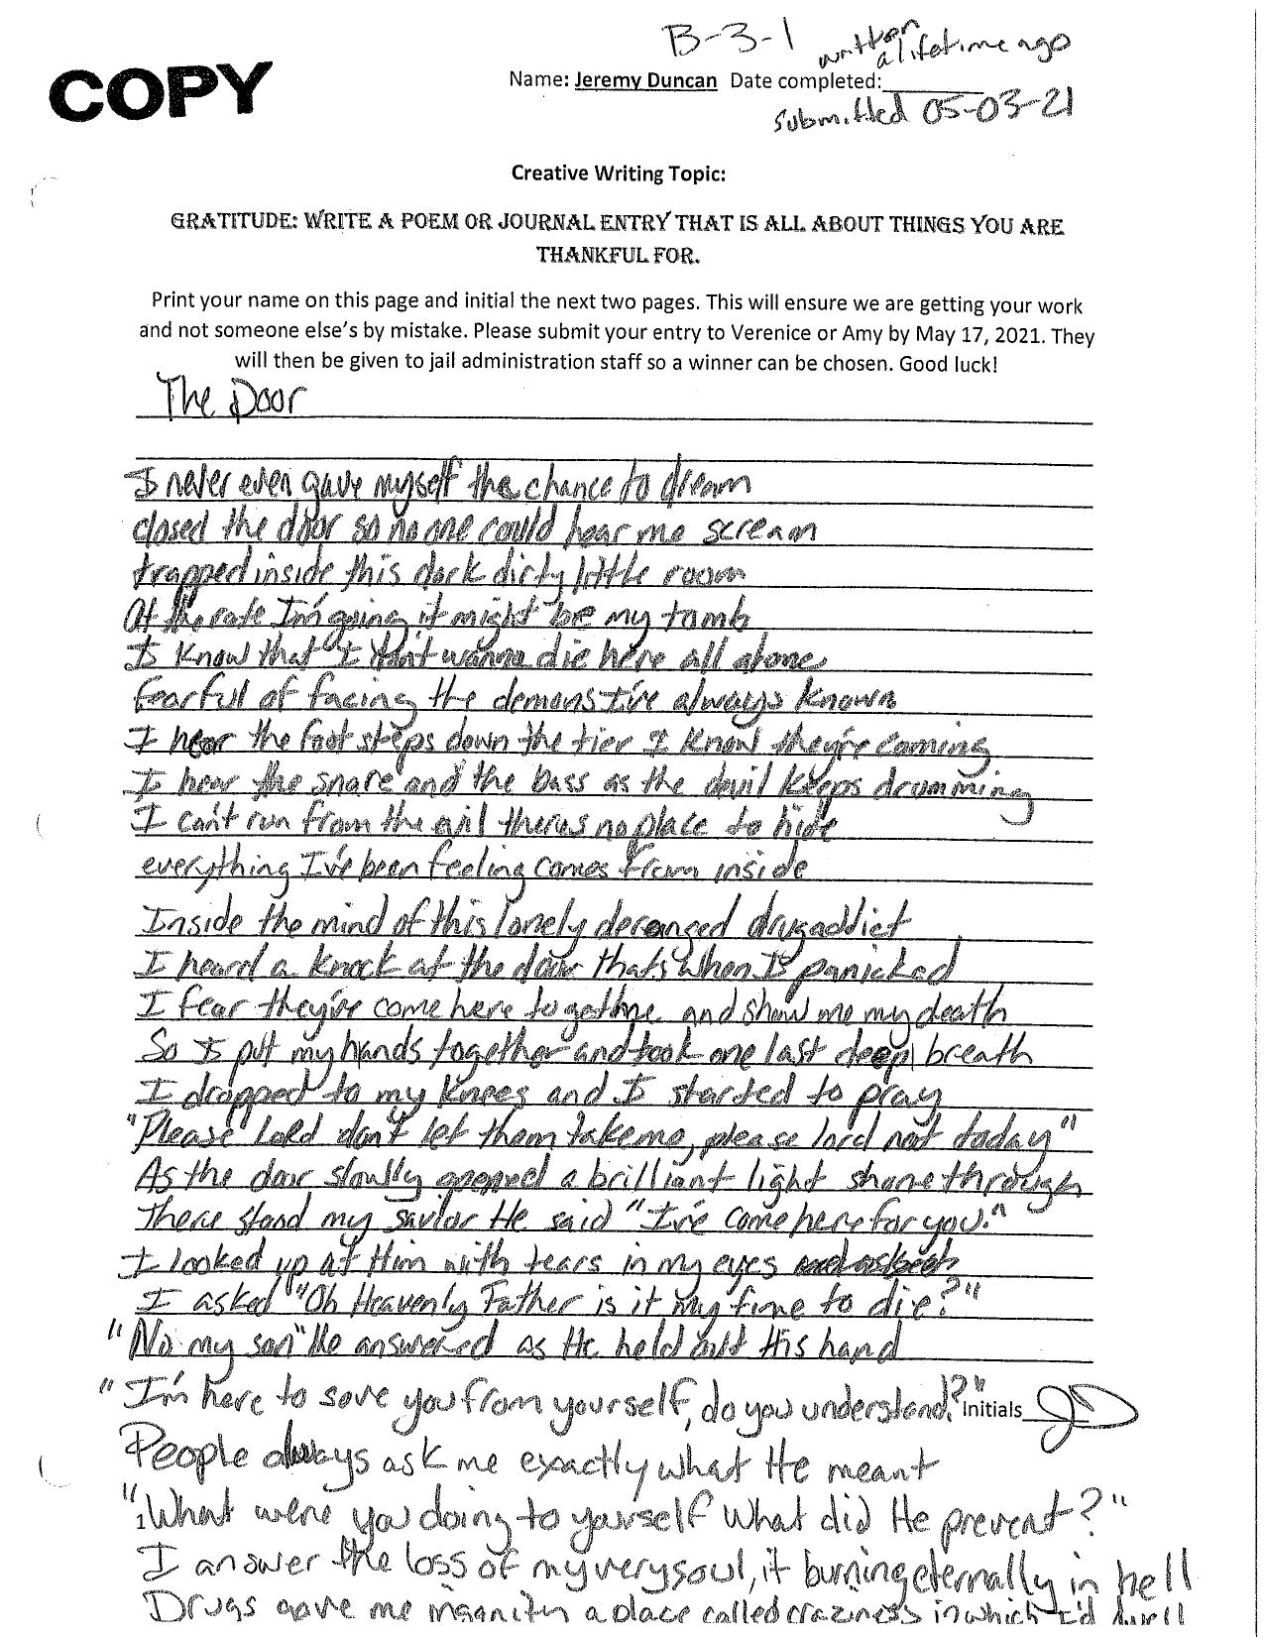 B-3-1
written
a lifetime ago
COPY
Name: Jeremy Duncan Date completed:
submitted 05-03-21
Creative Writing Topic:
GRATITUDE: WRITE A POEM OR JOURNAL ENTRY THAT IS ALL ABOUT THINGS YOU ARE
THANKFUL FOR.
Print your name on this page and initial the next two pages. This will ensure we are getting your work
and not someone else's by mistake. Please submit your entry to Verenice or Amy by May 17, 2021. They
will then be given to jail administration staff so a winner can be chosen. Good luck!
The Door
I never even gave myself the chance to dream
closed the door so no one could hear me scream
trapped inside this dark dirty little room
At the rate I'm going it might be my tomb
I know that I don't wanna die here all alone
fearful of facing the demons I've always known
I hear the foot steps down the tier I know they're coming
I hear the snare and the bass as the devil keeps drumming
I can't run from the evil theres no place to hide
everything I've been feeling comes from inside
Inside the mind of this lonely deranged drug addict
I heard a knock at the door thats when I panicked
I fear they've come here to get me and show me my death
So I put my hands together and took one last deep breath
I dropped to my knees and I started to pray
"Please" Lord don't let them take me, please lord not today"
As the door slowly opened a brilliant light shone through
There stood my savior He said "I've come here for you."
I looked up at Him with tears in my eyes
I asked "Oh Heavenly Father is it my time to die?"
"No my son" He answered as He held out His hand
"I'm here to save you from yourself, do you understand?"
Initials JD
People always ask me exactly what He meant
"What were you doing to yourself What did He prevent?"
1
I answer the loss of my very soul, it burning eternally in hell
Drugs gave me insanity a place called craziness in which I'd dwell